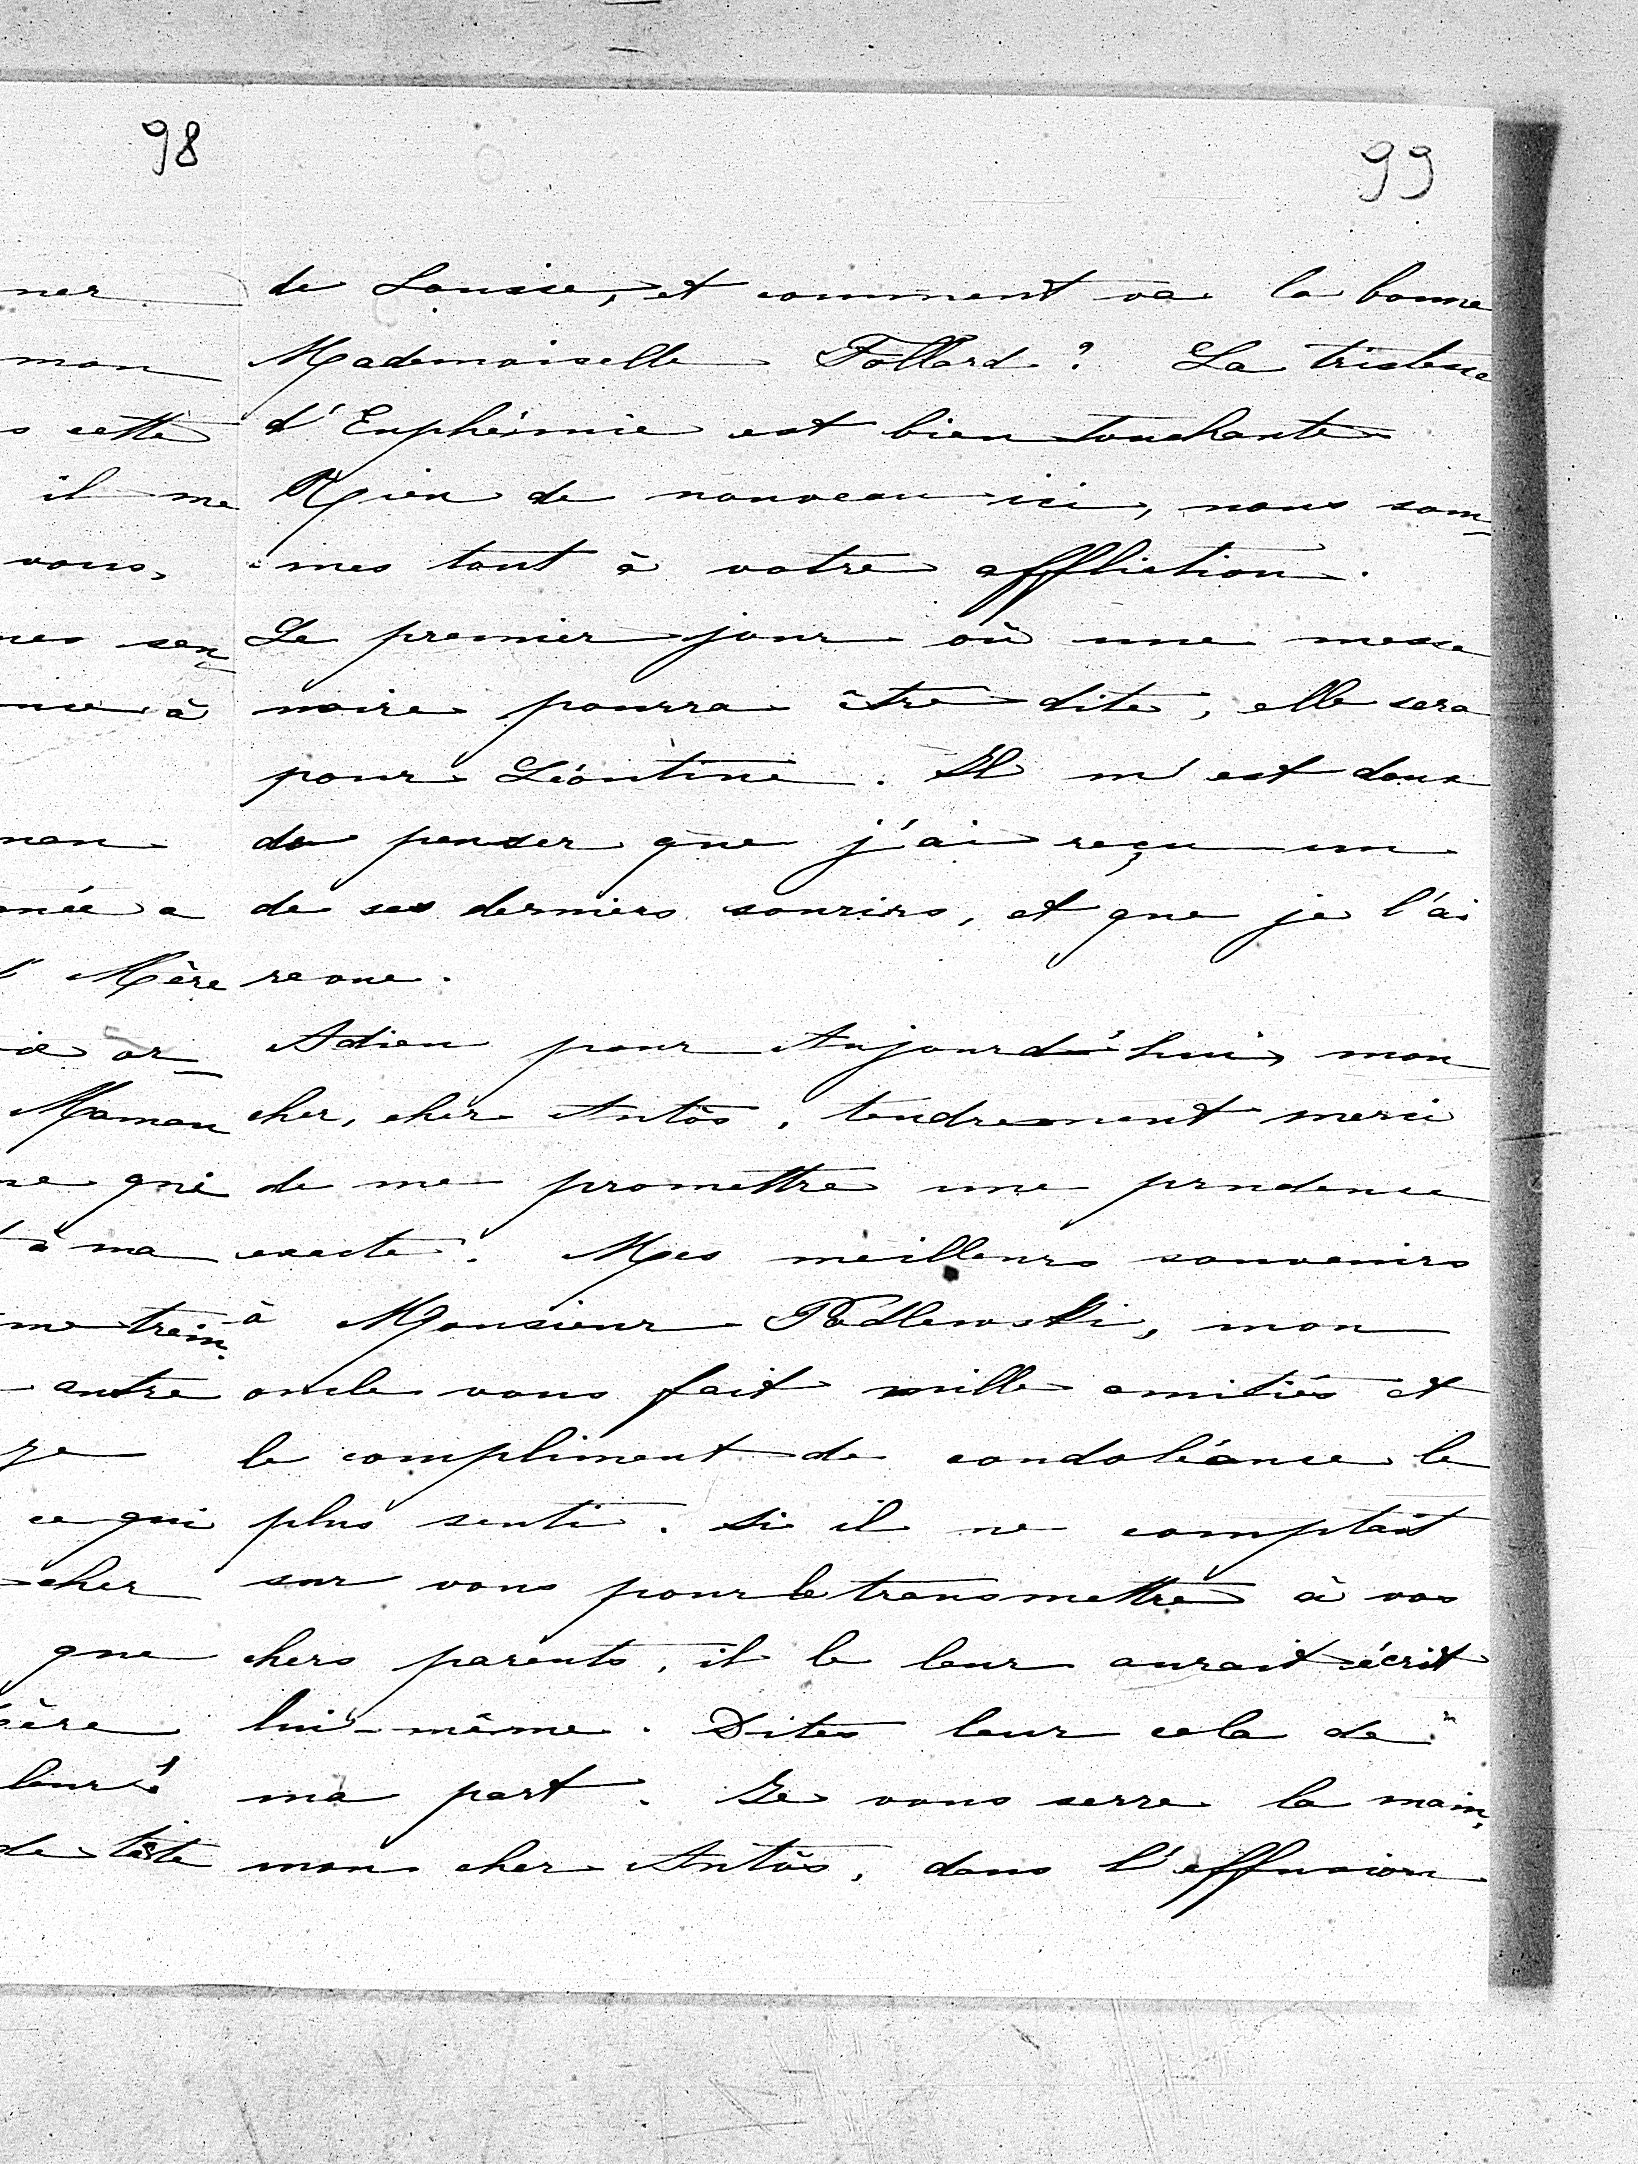 98
99
ner
mon
s cette
il me
vous,
nes sen-
nce à
née a
Mère
or-
Maman
ne qui
à ma
me trem-
autre
ce qui
cher
que
leurs
de tête
de Louise, et comment va la bonne
Mademoiselle Follard ? La tristesse
d'Euphémie est bien touchante
Rien de nouveau ici, nous som-
mes tout à votre affliction.
Le premier jour où une messe
noire pourra être dite, elle sera
pour Léontine. Il m'est doux
de penser que j'ai reçu un
de ses derniers sourirs, et que je l'ai
revue.
Adieu pour Aujourd'hui, mon
cher, cher Antos, tendrement merci
de me promettre une prudence
exacte. Mes meilleurs souvenirs
à Monsieur Podlewski, mon
oncle vous fait mille amitiés et
le compliment de condoléance le
plus senti. Si il ne comptait
sur vous pour le transmettre à vos
chers parents, il le leur aurait écrit
lui-même. Dites leur cela de
ma part. Je vous serre la main,
mon cher Antos, dans l'effusion